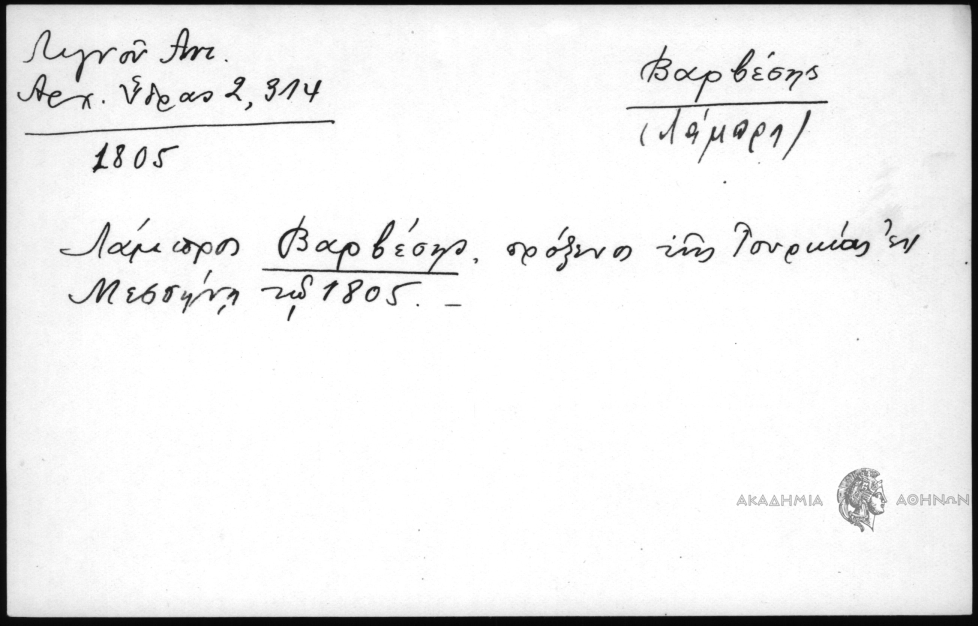 Λιγνοῦ Ἀντ.
Ἀρχ. Ὕδρας 2, 314
1805
Βαρβέσης
(Λάμπρη)
Λάμπρος Βαρβέσης, πρόξενος τῆς Τουρκίας ἐν
Μεσσήνῃ τῷ 1805. –
ΑΚΑΔΗΜΙΑ ΑΘΗΝΩΝ